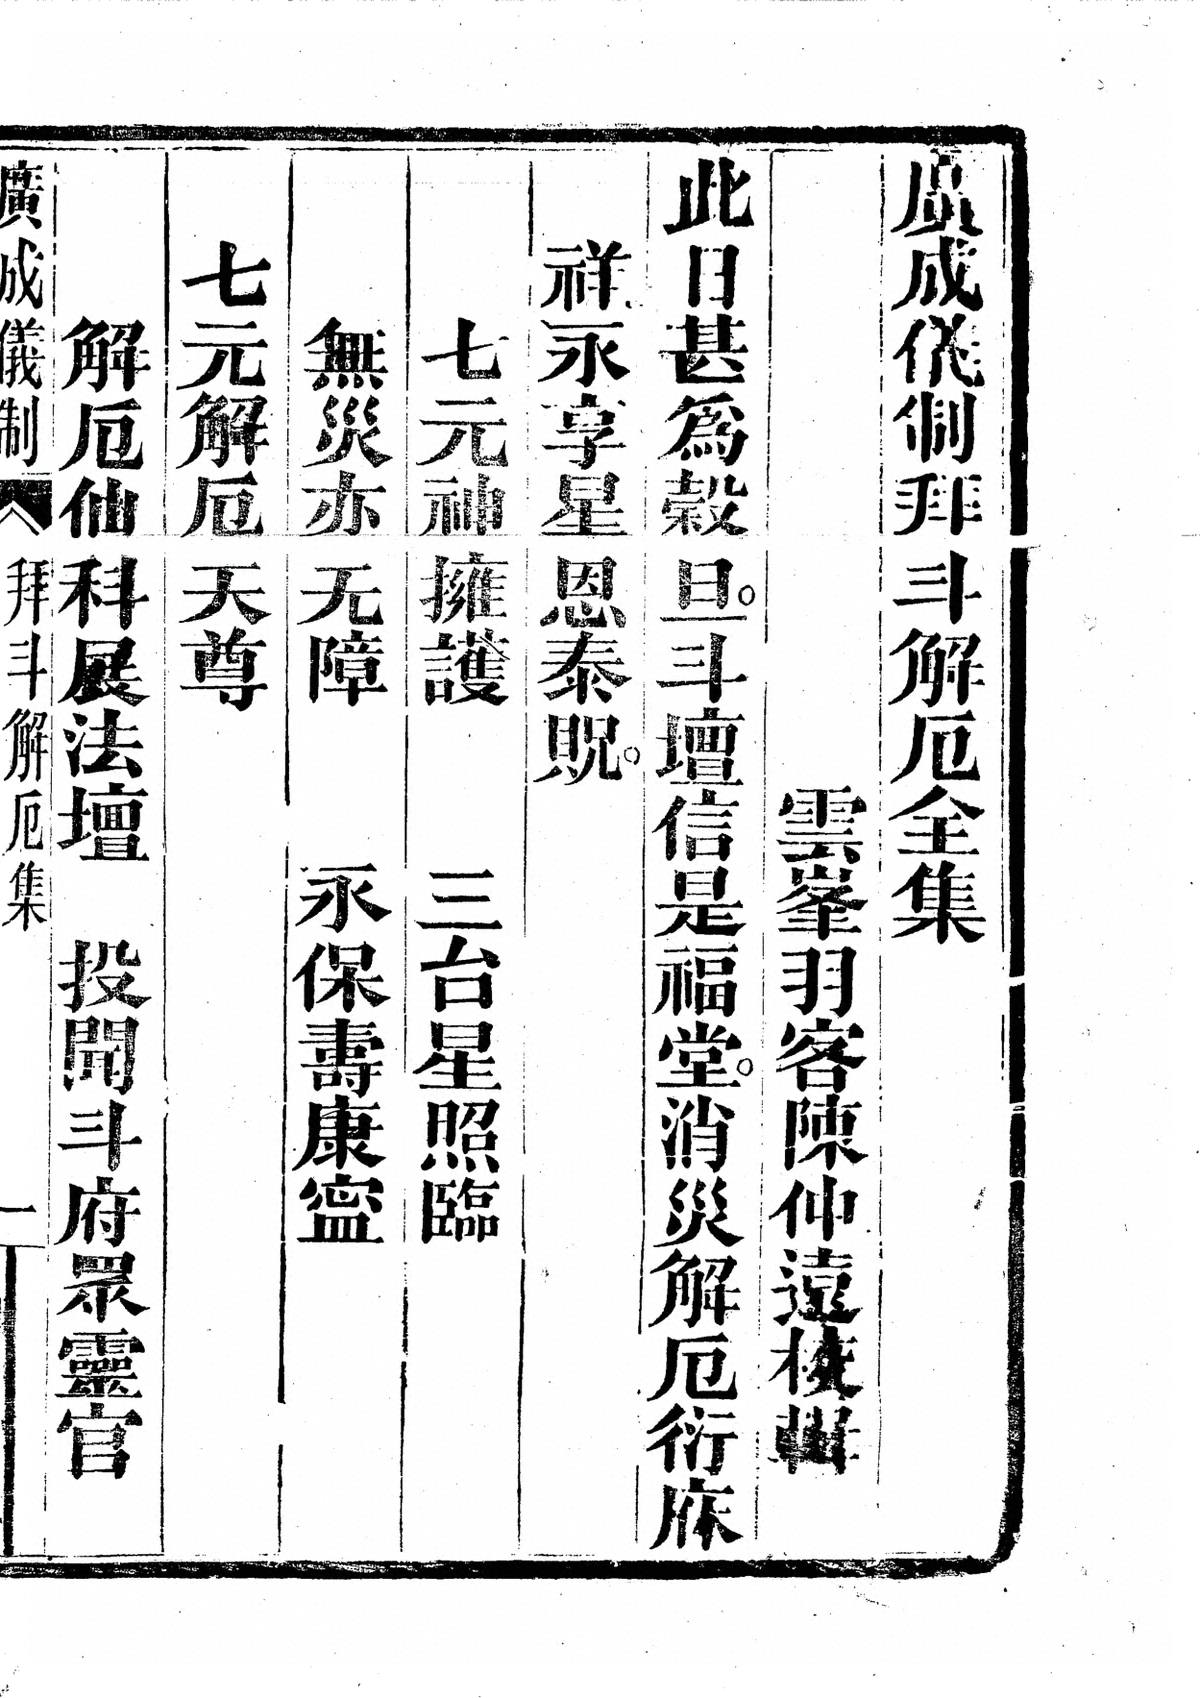 廣成儀制拜斗解厄全集
雲峯羽客陳仲遠校輯
此日甚爲穀旦。斗壇信是福堂。消災解厄衍庥
祥永享星恩泰貺。
七元神擁護　三台星照臨
無災亦无障　永保壽康寧
七元解厄天尊
解厄仙科展法壇　投聞斗府眾靈官
廣成儀制　拜斗解厄集　一